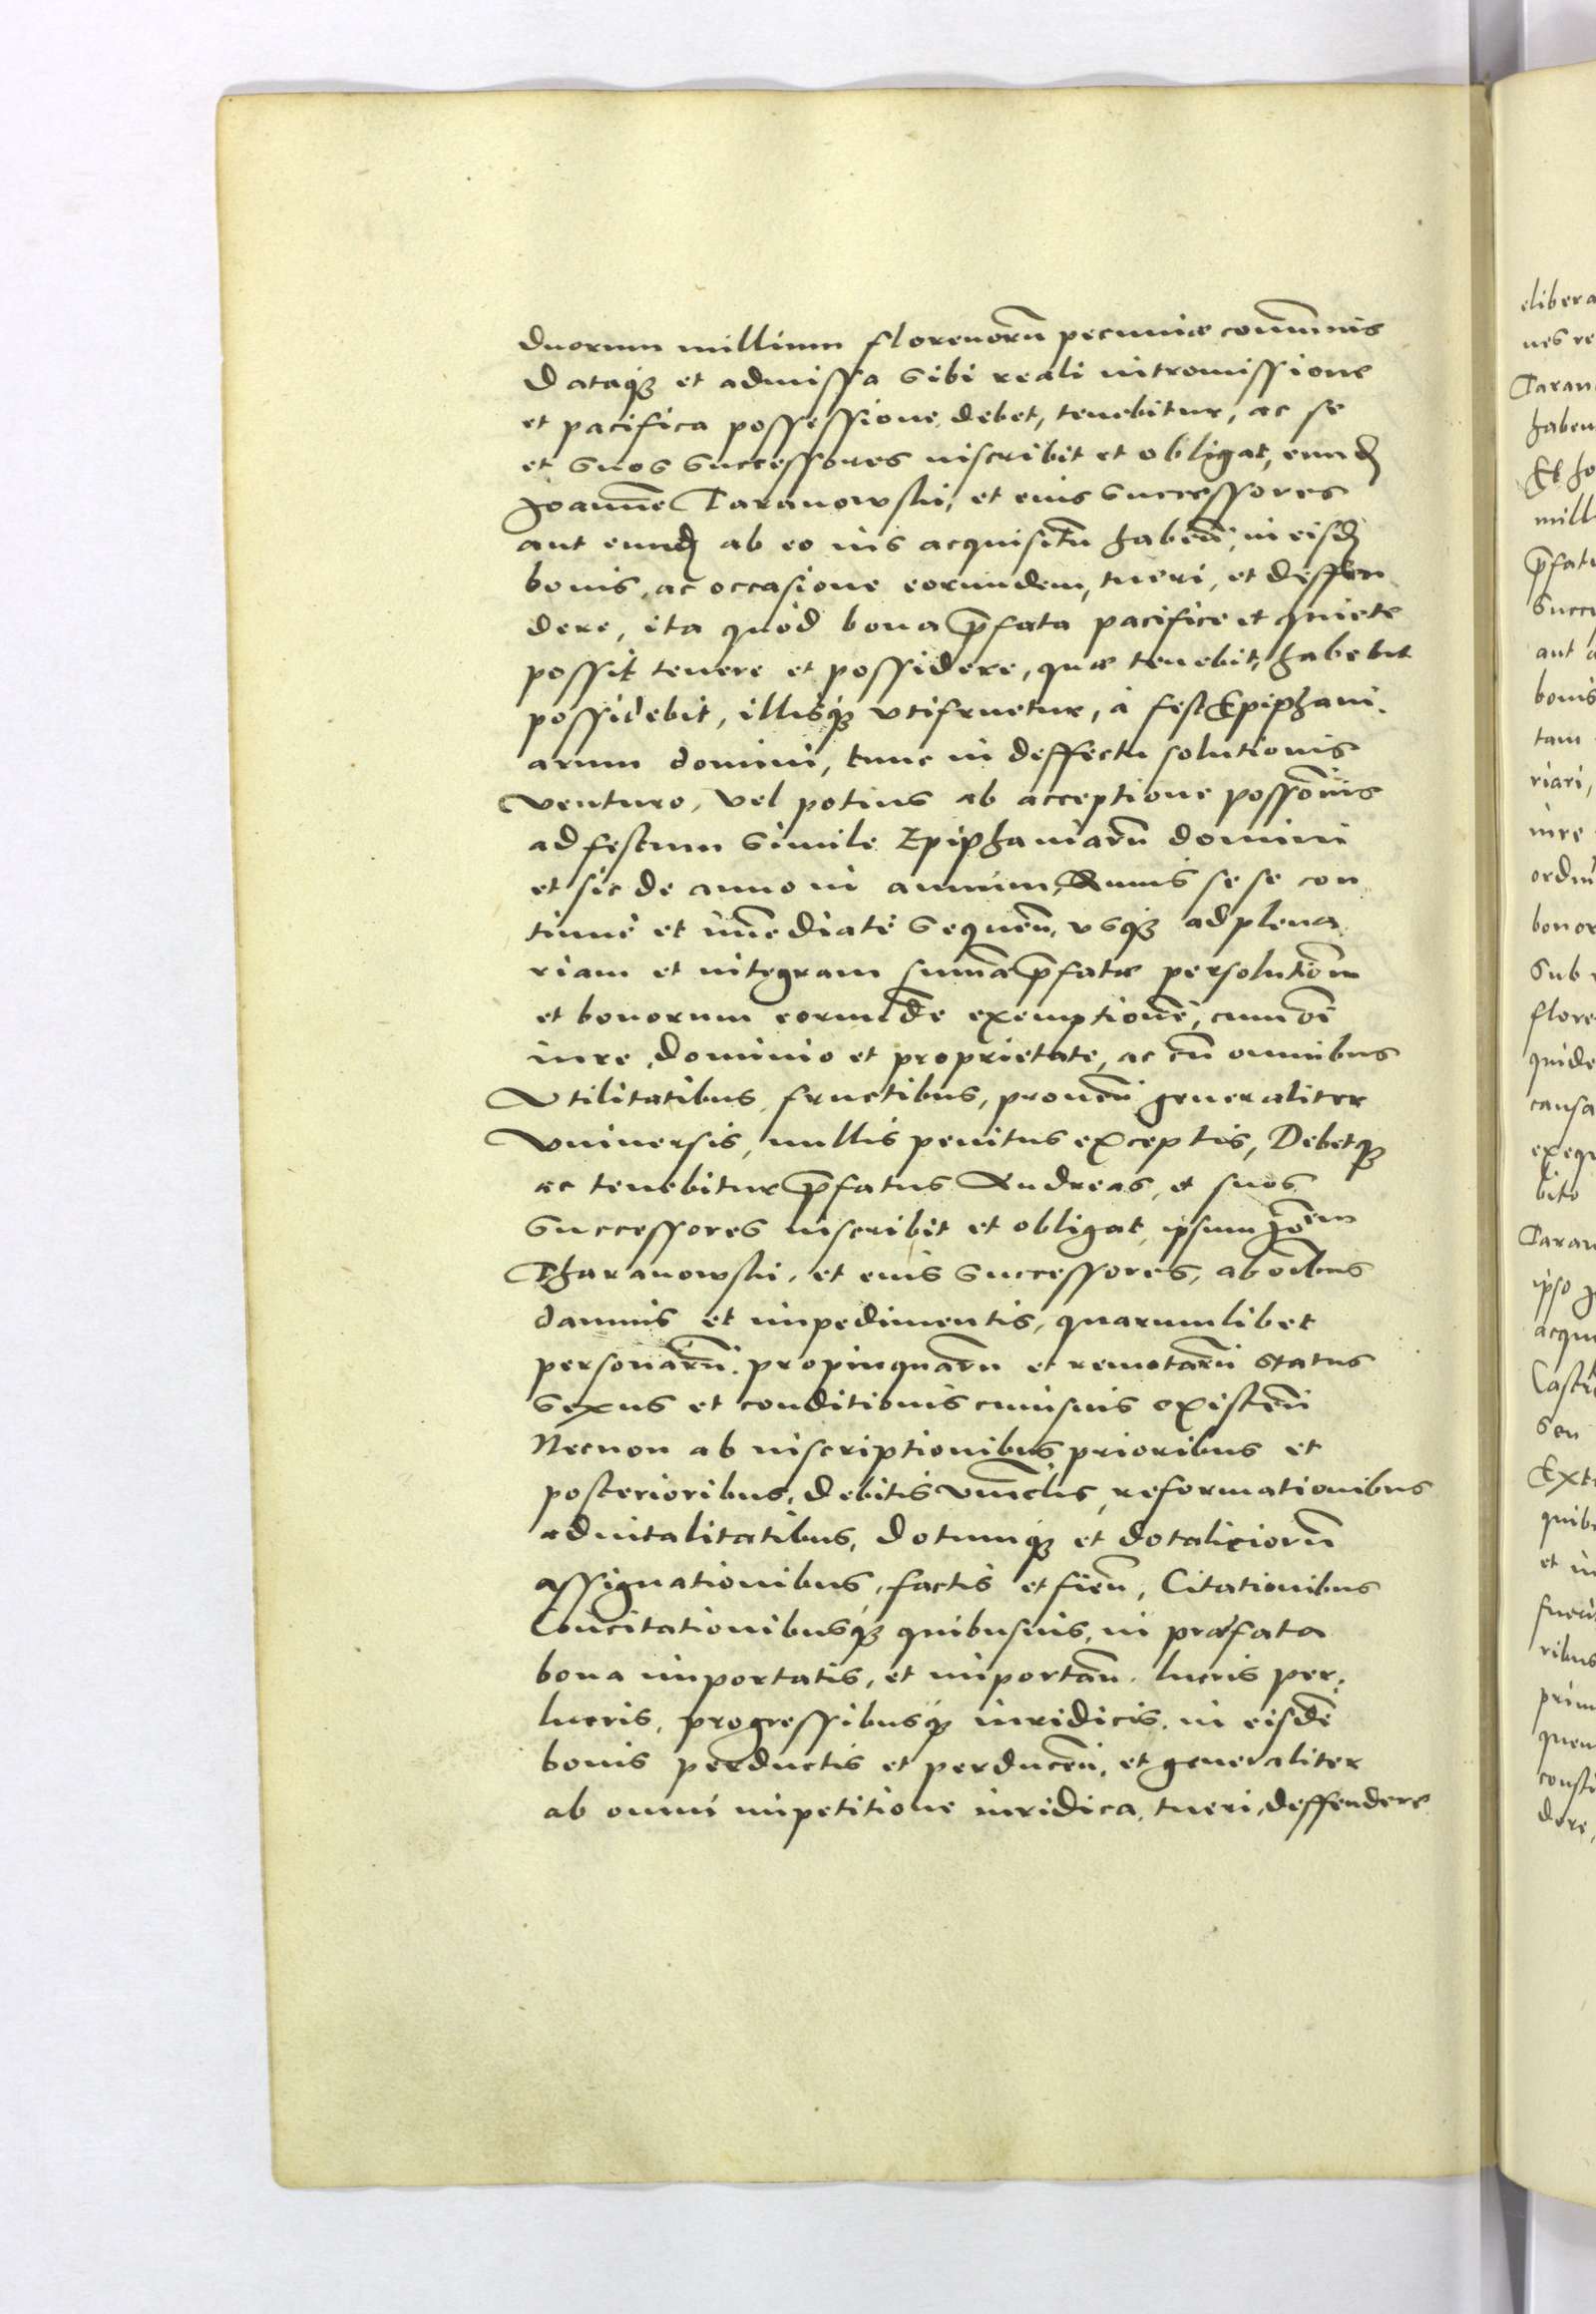 duorum millium florenorũ pecuniæ com̃unis
Dataqꝫ et admissa sibi reali intromissione
et pacifica possessione, debet, tenebitur, ac se
et suos successores inscribit et obligat, eund
Joannẽ Taranowski, et eius successores
aut eund ab eo ius acquisitũ habeñ, in eisd
bonis, ac occasione eorumdem, tueri, et deffen
dere, ita quòd bona p̃fata pacificè et quietè
possit tenere et possidere, quæ tenebit, habebit
possidebit, illisqꝫ vtifruetur, à fest Epiphani
arum domini, tunc in deffectu solutionis
venturo, vel potius ab acceptione possõnis
ad festum simile Epiphaniarũ domini
et sic de anno in annum, Annis sese con
tinuè et im̃ediatè sequeñ, vsqꝫ ad plena
riam et integram sum̃æ p̃fatæ persolutiõem
et bonorum eorumdẽ exemptionẽ, cum oĩ
iure, dominio et proprietate, ac cũ omnibus
Vtilitatibus, fructibus, proueñ generaliter
vniuersis, nullis penitus exceptis, Debetqꝫ
ac tenebitur p̃fatus Andreas, et suos
successores inscribit et obligat, ipsum Joẽm
Tharanowski, et eius successores, ab oĩbus
damnis et impedimentis, quarumlibet
personarũ propinquarũ et remotarũ status
sexus et conditionis cuiusuis existeñ
Necnon ab inscriptionibus prioribus et
posterioribus, debitis vinclis, reformationibus
aduitalitatibus, dotumqꝫ et dotaliciorũ
assignationibus, factis et fieñ, Citationibus
Concitationibusqꝫ quibusuis, in præfata
bona importatis, et importañ. lucris per,
lucris, progressibusqꝫ iuridicis, in eisdẽ
bonis perductis et perduceñ, et generaliter
ab omni impetitione iuridica, tueri, deffendere
elibera
nes re
Taran
haben
mill
p̃fat
Succe
aut a
bonis
tam
riari,
iure
ordin
bonor
Sub
flore
quide
causa
exequ
bito
Taran
ipso J
acqui
Castr
seu
Exte
quib
et in
fueri
ribus
prim
quem
consti
dere,